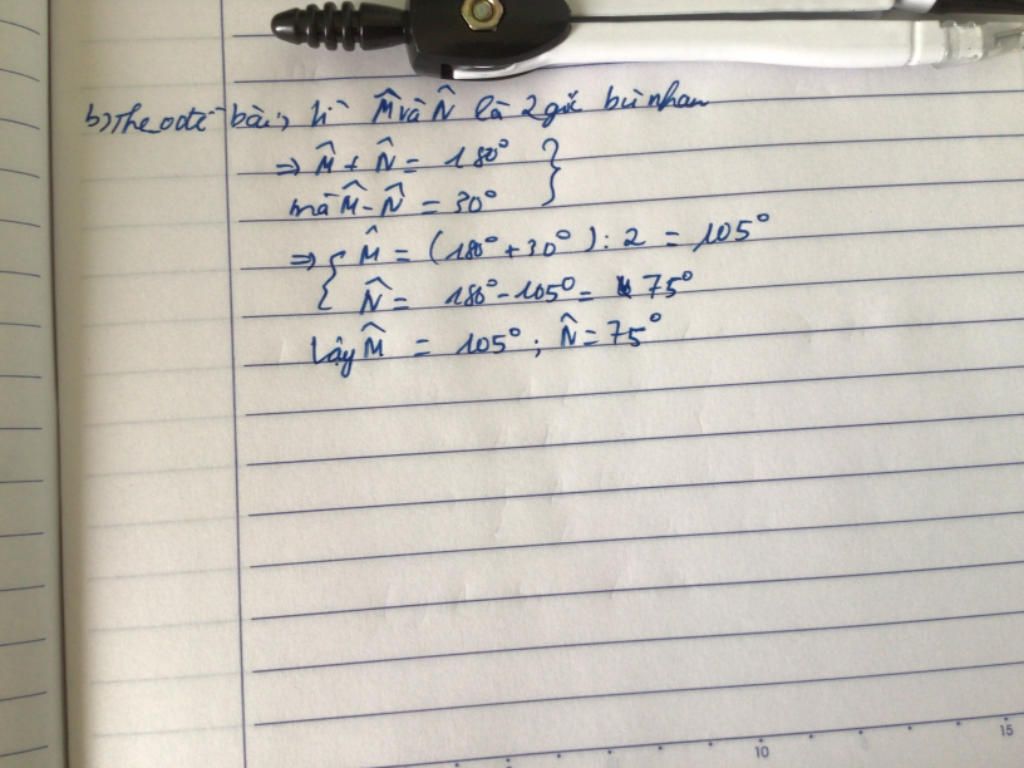 b) Theo đề bài, Vì M̂ và N̂ là 2 góc bù nhau
⇒ M̂ + N̂ = 180°
mà M̂ - N̂ = 30°
⇒ { M̂ = (180° + 30°) : 2 = 105°
N̂ = 180° - 105° = 75°
Vậy M̂ = 105° ; N̂ = 75°
10 15